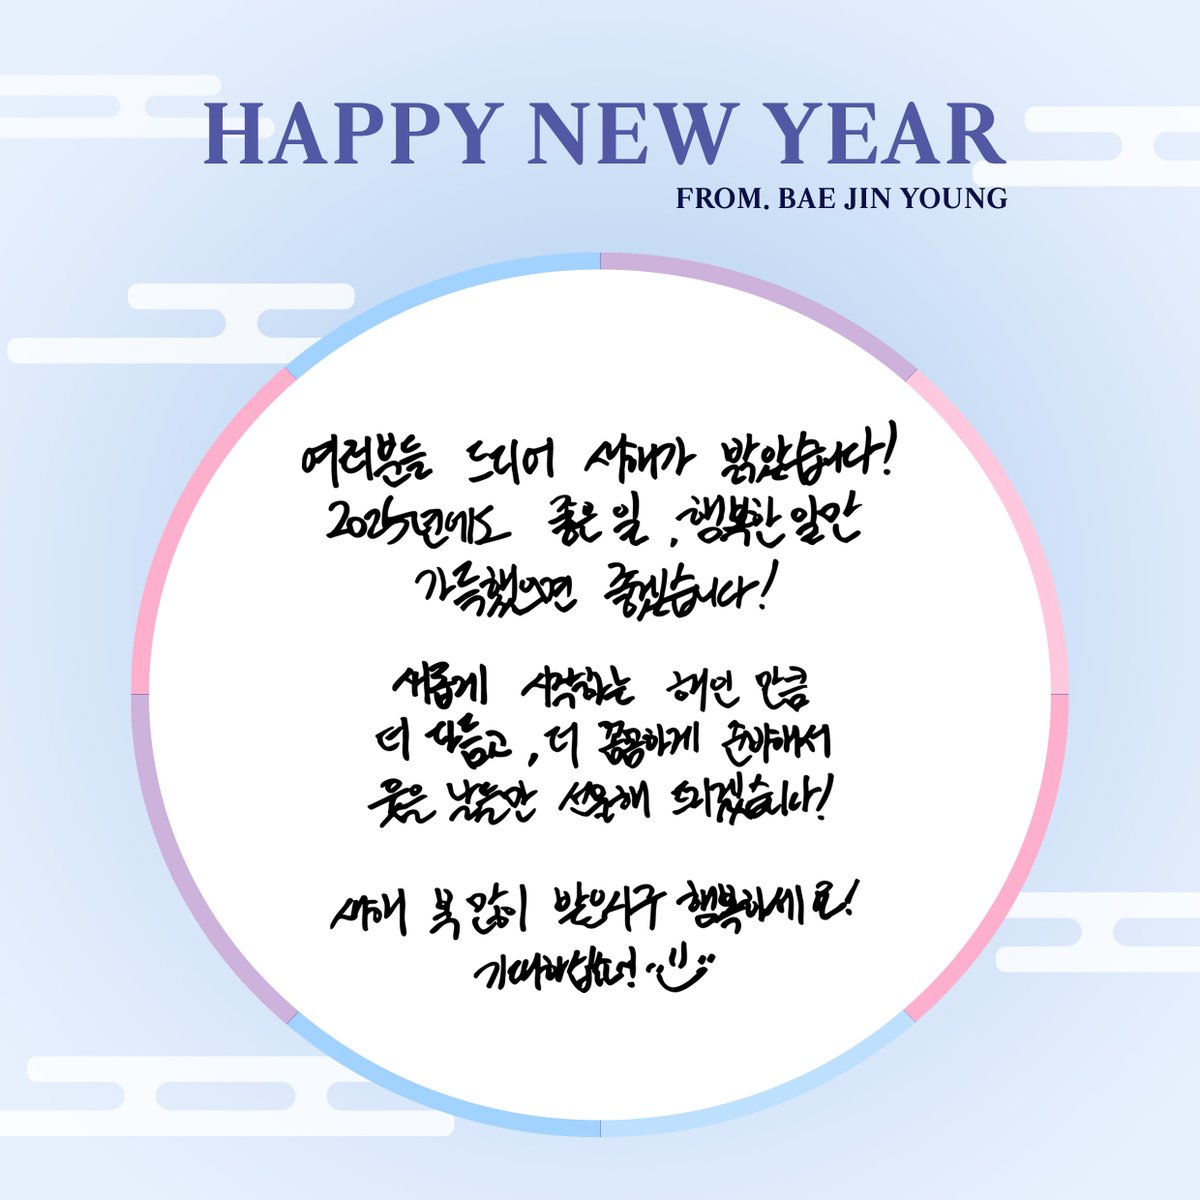 HAPPY NEW YEAR
FROM. BAE JIN YOUNG
여러분들 드디어 새해가 밝았습니다!
2025년에도 좋은 일, 행복한 일만
가득했으면 좋겠습니다!
새롭게 시작하는 해인 만큼
더 다듬고, 더 꼼꼼하게 준비해서
웃을 날들만 선물해 드리겠습니다!
새해 복 많이 받으시구 행복하세요!
기대하십쇼!